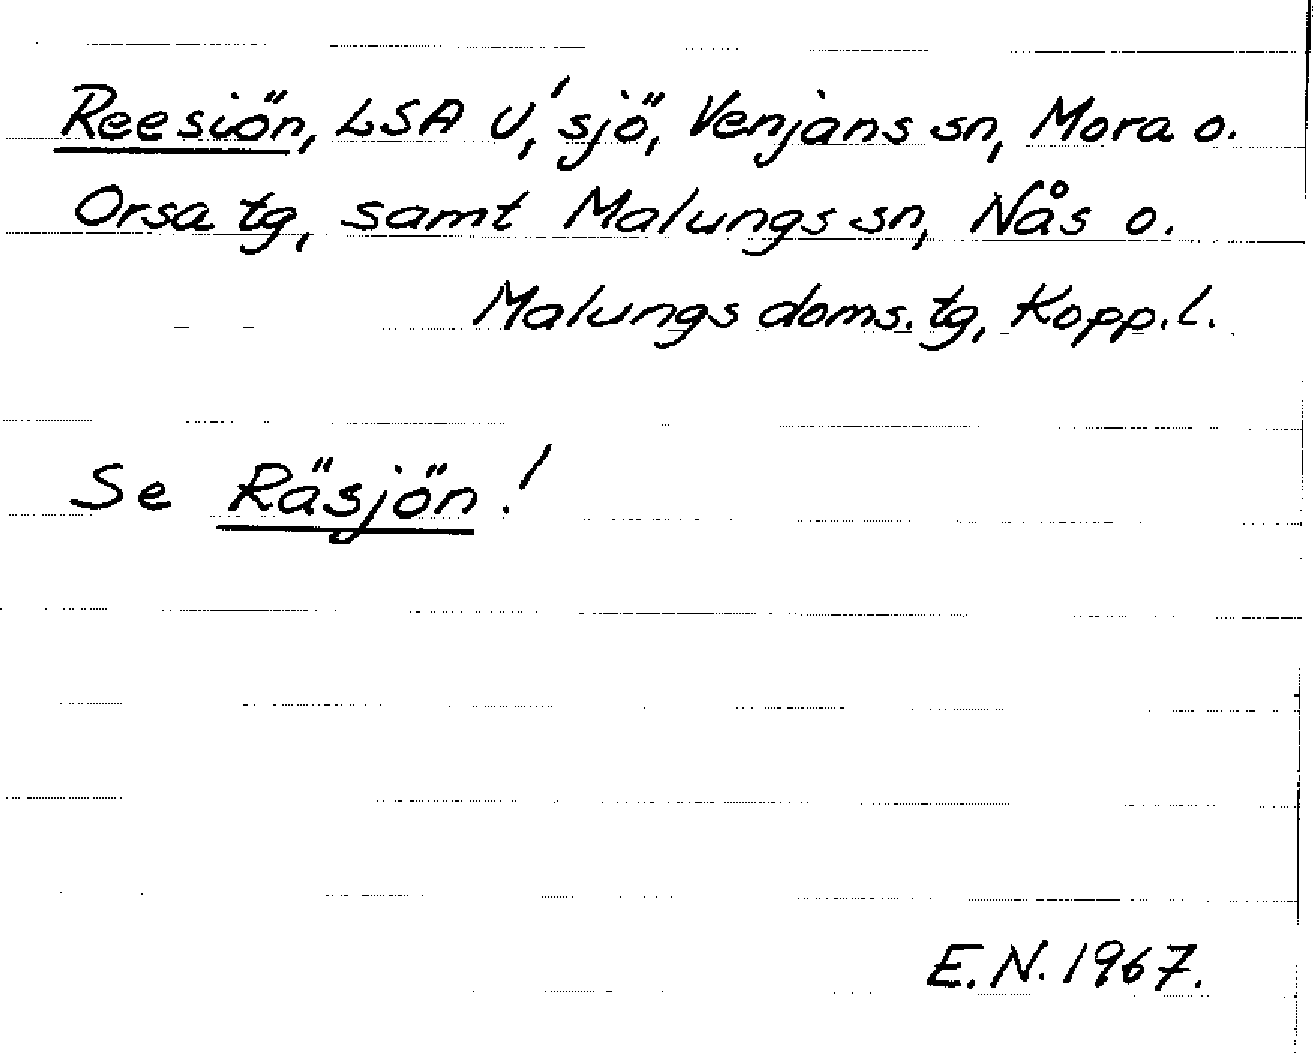 Reesiön, LSA U', sjö, Venjans sn, Mora o.
Orsa tg, samt Malungs sn, Nås o.
Malungs doms.tg, Kopp.l.
Se Räsjön!
E.N. 1967.